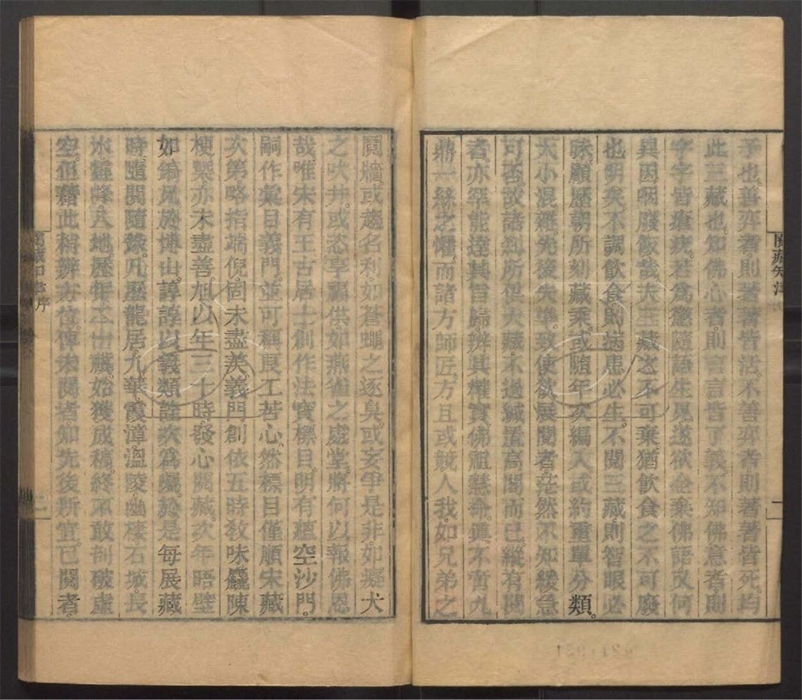 閱藏知津
子也善弈者則著著皆活不善弈者則著著皆死均
此三藏也知佛心者則言言皆了義不知佛意者則
字字皆瘡疣若為懲隨語生見遂欲全棄佛語又何
異因咽廢飯哉夫三藏之不可棄猶飲食之不可廢
也明矣不調飲食則病患必生不閱三藏則智眼必
昧顧歷朝所刻藏乘或隨年次編入或約重單分類
大小混雜先後失準致使欲展閱者茫然不知緩急
可否故諸剎所供大藏不過緘置高閣而已縱有閱
者亦罕能達其旨歸辨其權實佛祖慧命真不啻九
鼎一絲之懼而諸方師匠方且或競人我如兄弟之
鬩牆或趨名利如蒼蠅之逐臭或妄爭是非如癡犬
之吠井或恣享福供如燕雀之處堂將何以報佛恩
哉唯宋有王古居士創作法寶標目明有蘊空沙門
嗣作彙目義門並可稱良工苦心然標目僅順宋藏
次第略指端倪固未盡美義門創依五時教味麤陳
梗槩亦未盡善旭以年三十時發心閱藏次年晤壁
如鎬兄於博山諄諄以義類詮次為囑於是每展藏
時隨閱隨錄凡歷龍居九華霞漳溫陵幽棲石城長
水靈峰八地歷年二十禩始獲成稿終不敢剖破虛
空但藉此稍辨方位俾未閱者知先後所宜已閱者
閱藏知津序
二